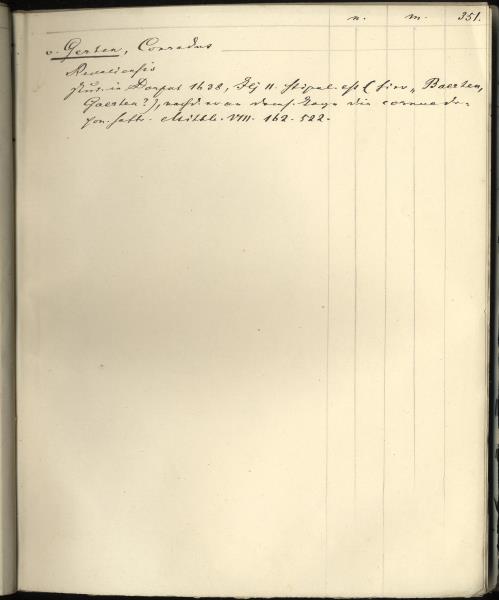 n. m. 351.
v. Gerten, Conradus
Revaliensis
Stud. in Dorpat 1638, Stipul. est (hier „Baerten,
Gaerten?), nachdem er an dems. Tage die cornua de-
pon. hatte. Mitthl. VIII. 162. 522.